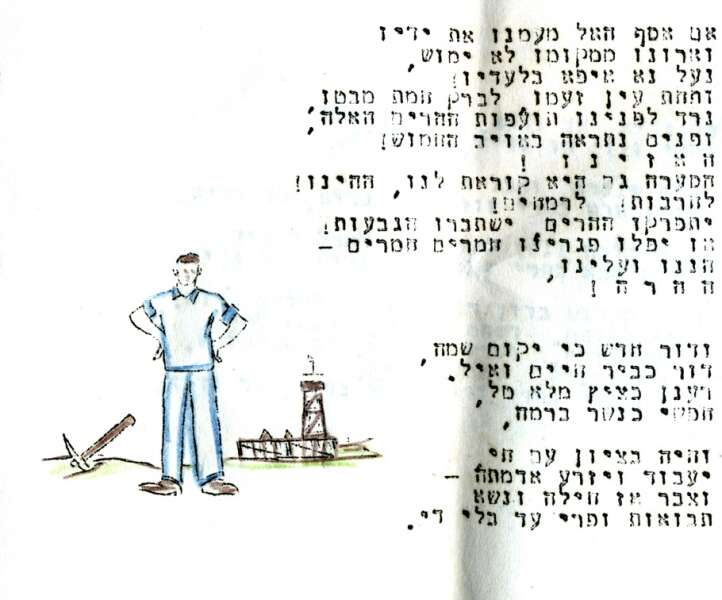 אם אסף האל מעמנו את ידיו
וארונו ממקומו לא ימוש,
נעל נא איפא בלעדיו!
ותחת עין זעמו, לברק חמת מבטו,
נרד לפנינו תועפות ההרים האלה,
ופנים נתראה באויב החמוש!
ה א ז י נ ו !
הסערה גם היא קוראת לנו, ההינו!
לחרבות! לרמחים!
יתפרקו ההרים, ישתברו הגבעות!
או יפלו פגרינו חמרים חמרים –
הננו ועלינו,
ה ה ר ה !
ודור חדש כי יקום שמה,
דור כביר חיים ואיל.
רענן כציץ מלא טל,
חפשי כנשר ברמה,
והיה בציון עם חי
יעבוד ויזרע אדמתה –
וצבר אז חילה ונשא
תבואות ופרי עד בלי די.